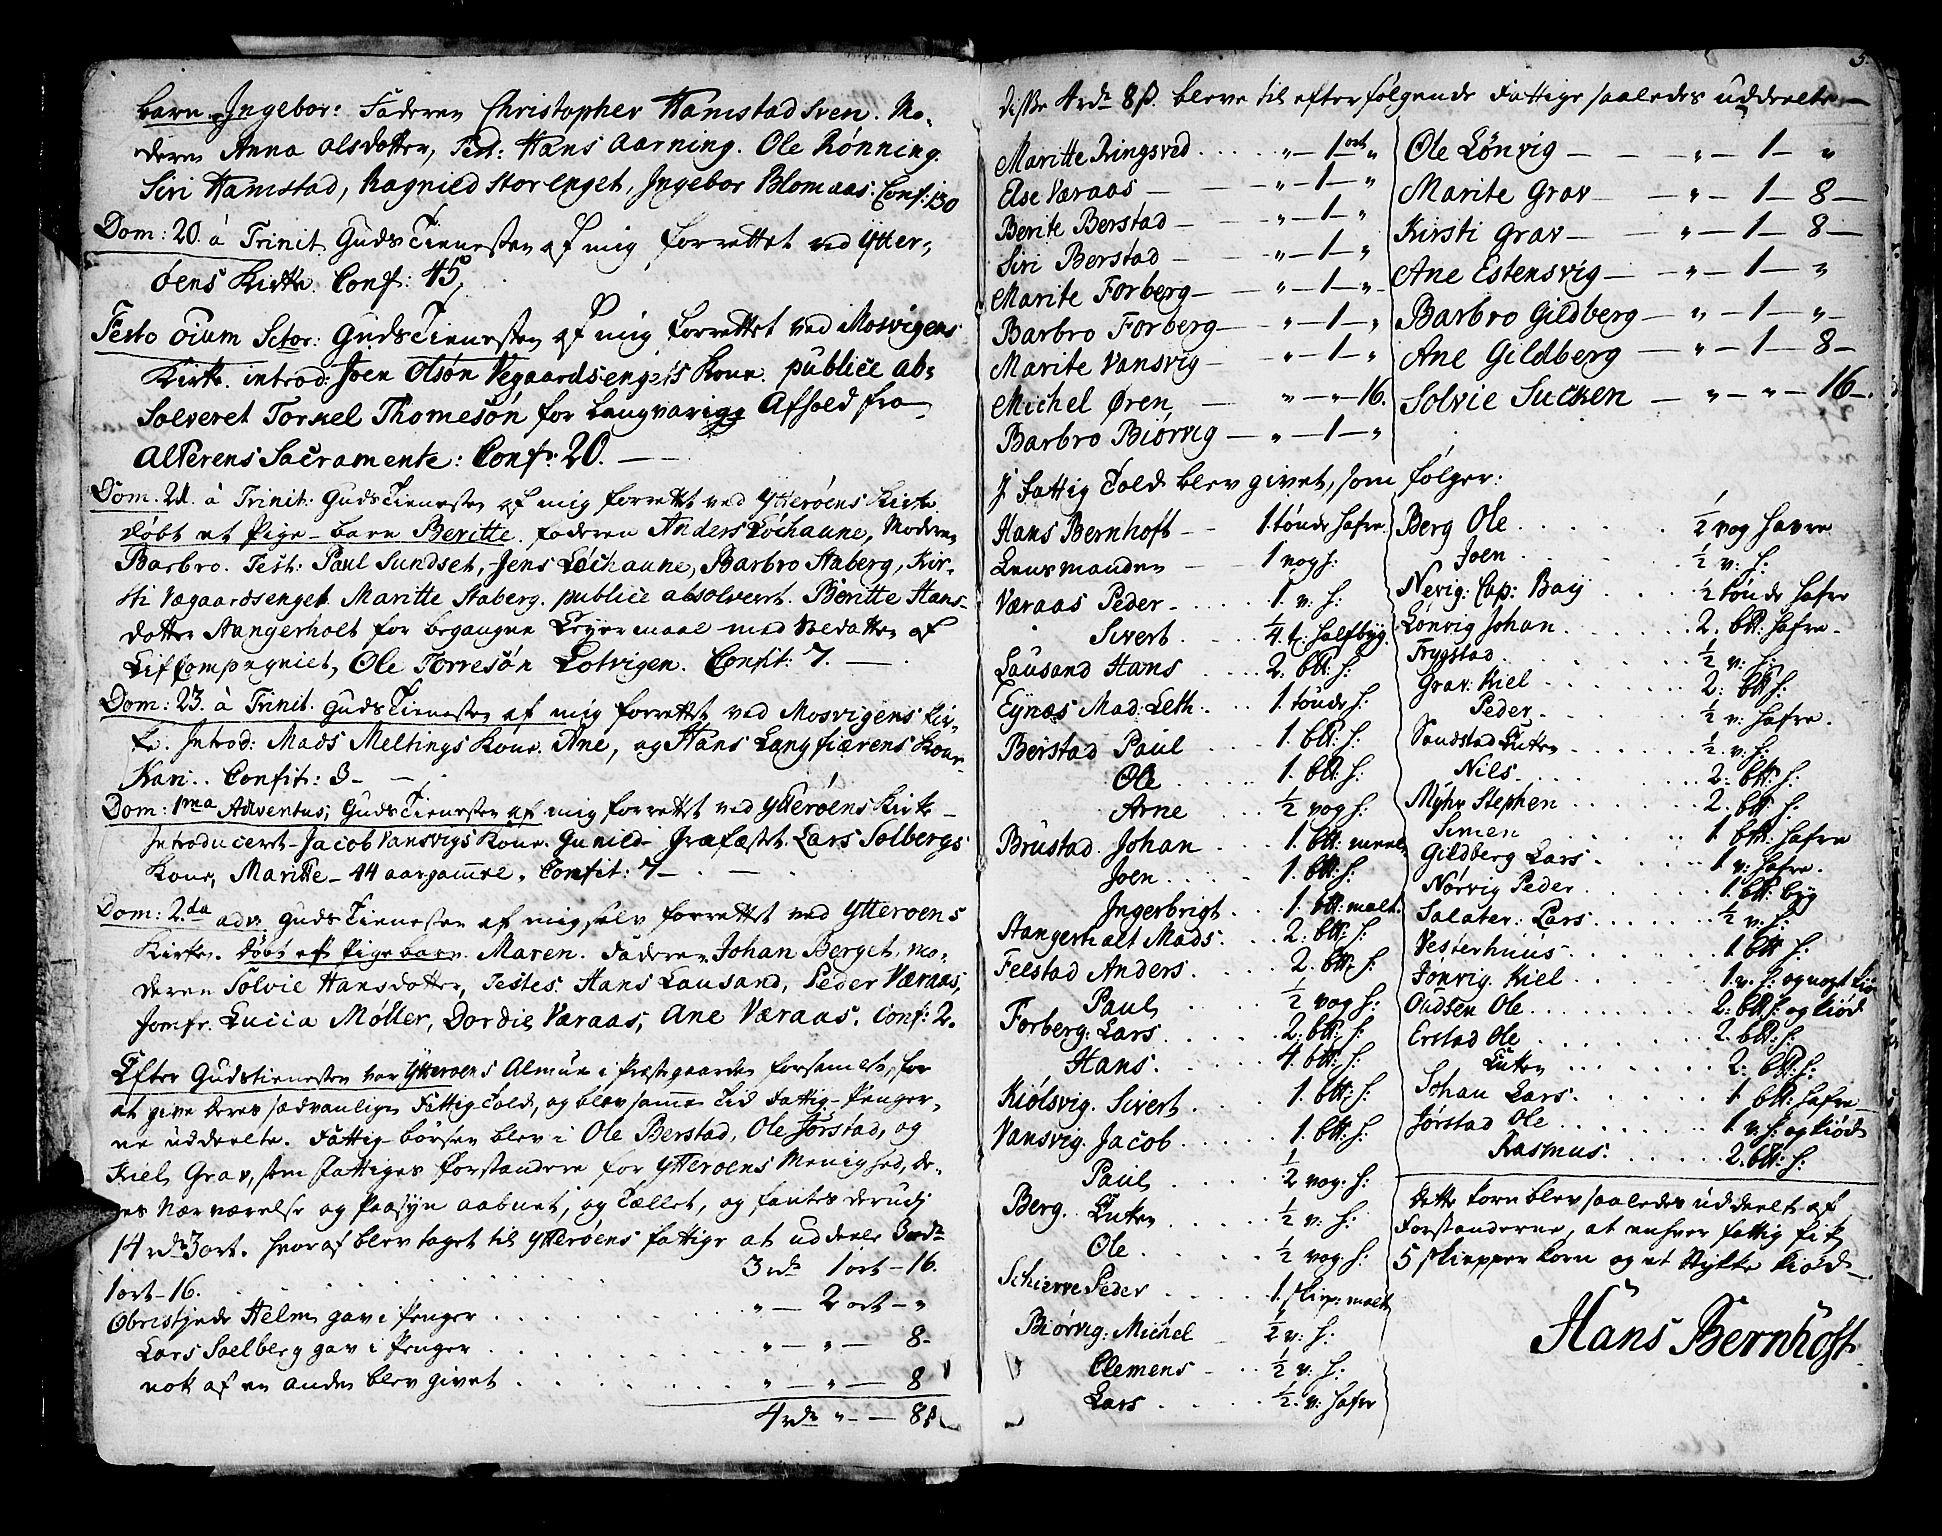 barn Ingebor: Faderen Christopher Hamstad Sven. Mo-
deren Anna Olsdotter, Test: Hans Aarning. Ole Rønning.
Siri Hamstad, Ragnild Storenget, Ingebor Blomaas. Conf: 130
Dom: 20. à Trinit. Guds Tienesten af mig forrettet ved Ytter-
øens Kirke. Conf: 45,
Festo Oium Sctor: Guds Tienesten af mig forrettet ved Mosvigens
Kirke. introd: Joen Olsøn Vegaardsengets Kone. publice ab-
solveret Torkel Thomesøn for langvarigg Afhold fra
Alterens Sacramente: Conf: 20.
Dom. 21. à Trinit: Guds Tienesten af mig forrettet ved Ytterøens Kirke
døbt et Pige-barn Beritte. faderen Anders Løchaune, Moderen
Barbro. Test: Paul Sundset, Jens Løchaune, Barbro Staberg, Kir-
sti Vægaardsenget. Maritte Staberg. publice absolvert. Beritte Hans-
dotter Stangerholt for begangne Leyermaal med Soldatten af
Lif Compagniet, Ole Torresøn Lotvigen. Confit: 7.
Dom: 23. à Trinit. Guds Tienesten af mig forrettet ved Mosvigens Kir-
ke. Introd: Mads Meltings Kone. Ane, og Hans Langfiærens Kone
Kari. Confit: 3
Dom: 1ma Adventus, Guds Tienesten af mig forrettet ved Ytterøens Kirke
Introduceret Jacob Vansvigs Kone. Gunild. Græfæstet Lars Solbergs
Kone, Maritte 44 aar gammel. Confit: 7
Dom: 2da adv: Guds Tienesten af mig selv forrettet ved Ytterøens
Kirke. døbt et Pigebarn. Maren. Faderen Johan Berget, mo-
deren Solvie Hansdotter, Testes: Hans Lausand, Peder Væraas,
Jomfr. Lucia Møller, Dordie Væraas, Ane Væraas. Conf: 2.
Efter Gudstienesten var Ytterøens Almue i Præstgaarden forsamlet, for
at give deres sædvanlige Fattig-Told, og blev samme Tid Fattig-Penger-
ne uddeelte. Fattig børsen blev i Ole Berstad, Ole Jørstad, og
Kiel Grav, som Fattiges Forstandere for Ytterøens Menighed, de-
res Nærværelse og Paasyn aabnet, og tællet, og fantes derudj
14 rdr 3 ort. hvoraf blev taget til Ytterøens fattige at uddeele 3 rdr
1 ort-16. 3 rdr 1 ort-16.
Obristinde Helm gav i Penger " - 2 ort - "
Lars Saelberg gav i Penger " - " - 8-
nok af en anden blev givet " - " - 8
4 rdr " - 8 ß
5.
disse 4 rdr 8 ß. bleve til efterfølgende Fattige saaledes uddeelte
Maritte Ringsved " - 1 ort "
Else Væraas " - 1 - "
Berite Berstad " - 1 - "
Siri Berstad " - 1 - "
Marite Forberg " - 1 - "
Barbro Forberg " - 1 - "
Marite Vansvig " - 1 - "
Michel Øren " - " - 16.
Barbro Biørvig " - 1 - "
Ole Lønvig " - 1 - "
Marite Grav " - 1 - 8
Kirsti Grav " - 1 - 8
Ane Estensvig " - 1 - "
Barbro Gildberg " - 1 - "
Ane Gildberg " - 1 - 8
Solvie Sucken " - " - 16.
J Fattig Told blev givet, som følger:
Hans Bernhoft 1 tønde hafre
Lensmanden 1 vog h:
Væraas Peder 1. v: h:
Sivert 1/4 t. halfbyg.
Lausand Hans 2. btt: h:
Eynæs Mad: Leth. 1. tønde h:
Berstad Paul 1. btt: h:
Ole 1. btt: h:
Arne 1/2 vog h:
Brustad Johan 1. btt: meel
Joen 1. btt: h:
Ingerbrigt 1. btt: malt.
Stangerholt Mads 2. btt: h:
Feelstad Anders 2. btt: h:
Paul 1/2 vog h:
Forberg: Lars 2. btt: h:
Hans 4. btt: h:
Kiølsvig. Sivert 1. btt: h:
Vansvig. Jacob 1. btt: h:
Paul 1/2 vog: h:
Berg. Luken 1/2 v: h:
Ole 1/2 vog h:
Schierve Peder 1. skiep: malt
Biørvig: Michel 1/2 v: h:
Clemens 1/2 v: h:
Lars 1/2. v: hafre
Berg Ole 1/2 vog havre
Joen 1/2 v: h:
Nevig: Cap: Bay 1/2 tønde hafre
Lønvig Johan 2. btt: hafre
Trygstad 1/2 v: h:
Grav: Kiel 2: btt h:
Peder 1/2 v: hafre.
Sandstad Luken 1/2. v: h:
Nils 2. btt: h:
Myhr Stephen 2. btt: h:
Simen 1. btt: hafre
Gildberg Lars 1 v: hafre.
Nørvig Peder 1 btt: byg
Salater: Lars 1/2 v: h:
Vesterhuus 1 btt h:
Jonvig. Kiel 1. v: h: og nogt kiø
Oudsen Ole 2: btt h: og kiød
Erstad Ole 2. btt: h:
Luken 2: btt: h:
Johan Lars 1 btt: hafre
Jørstad Ole 1. v: h: og kiød
Rasmus: 2. btt: h:
Dette korn blev saaledes uddeelt af
Forstanderne, at enhver fattig fik
5 skiepper korn og et Stykke kiød
Hans Bernhoft